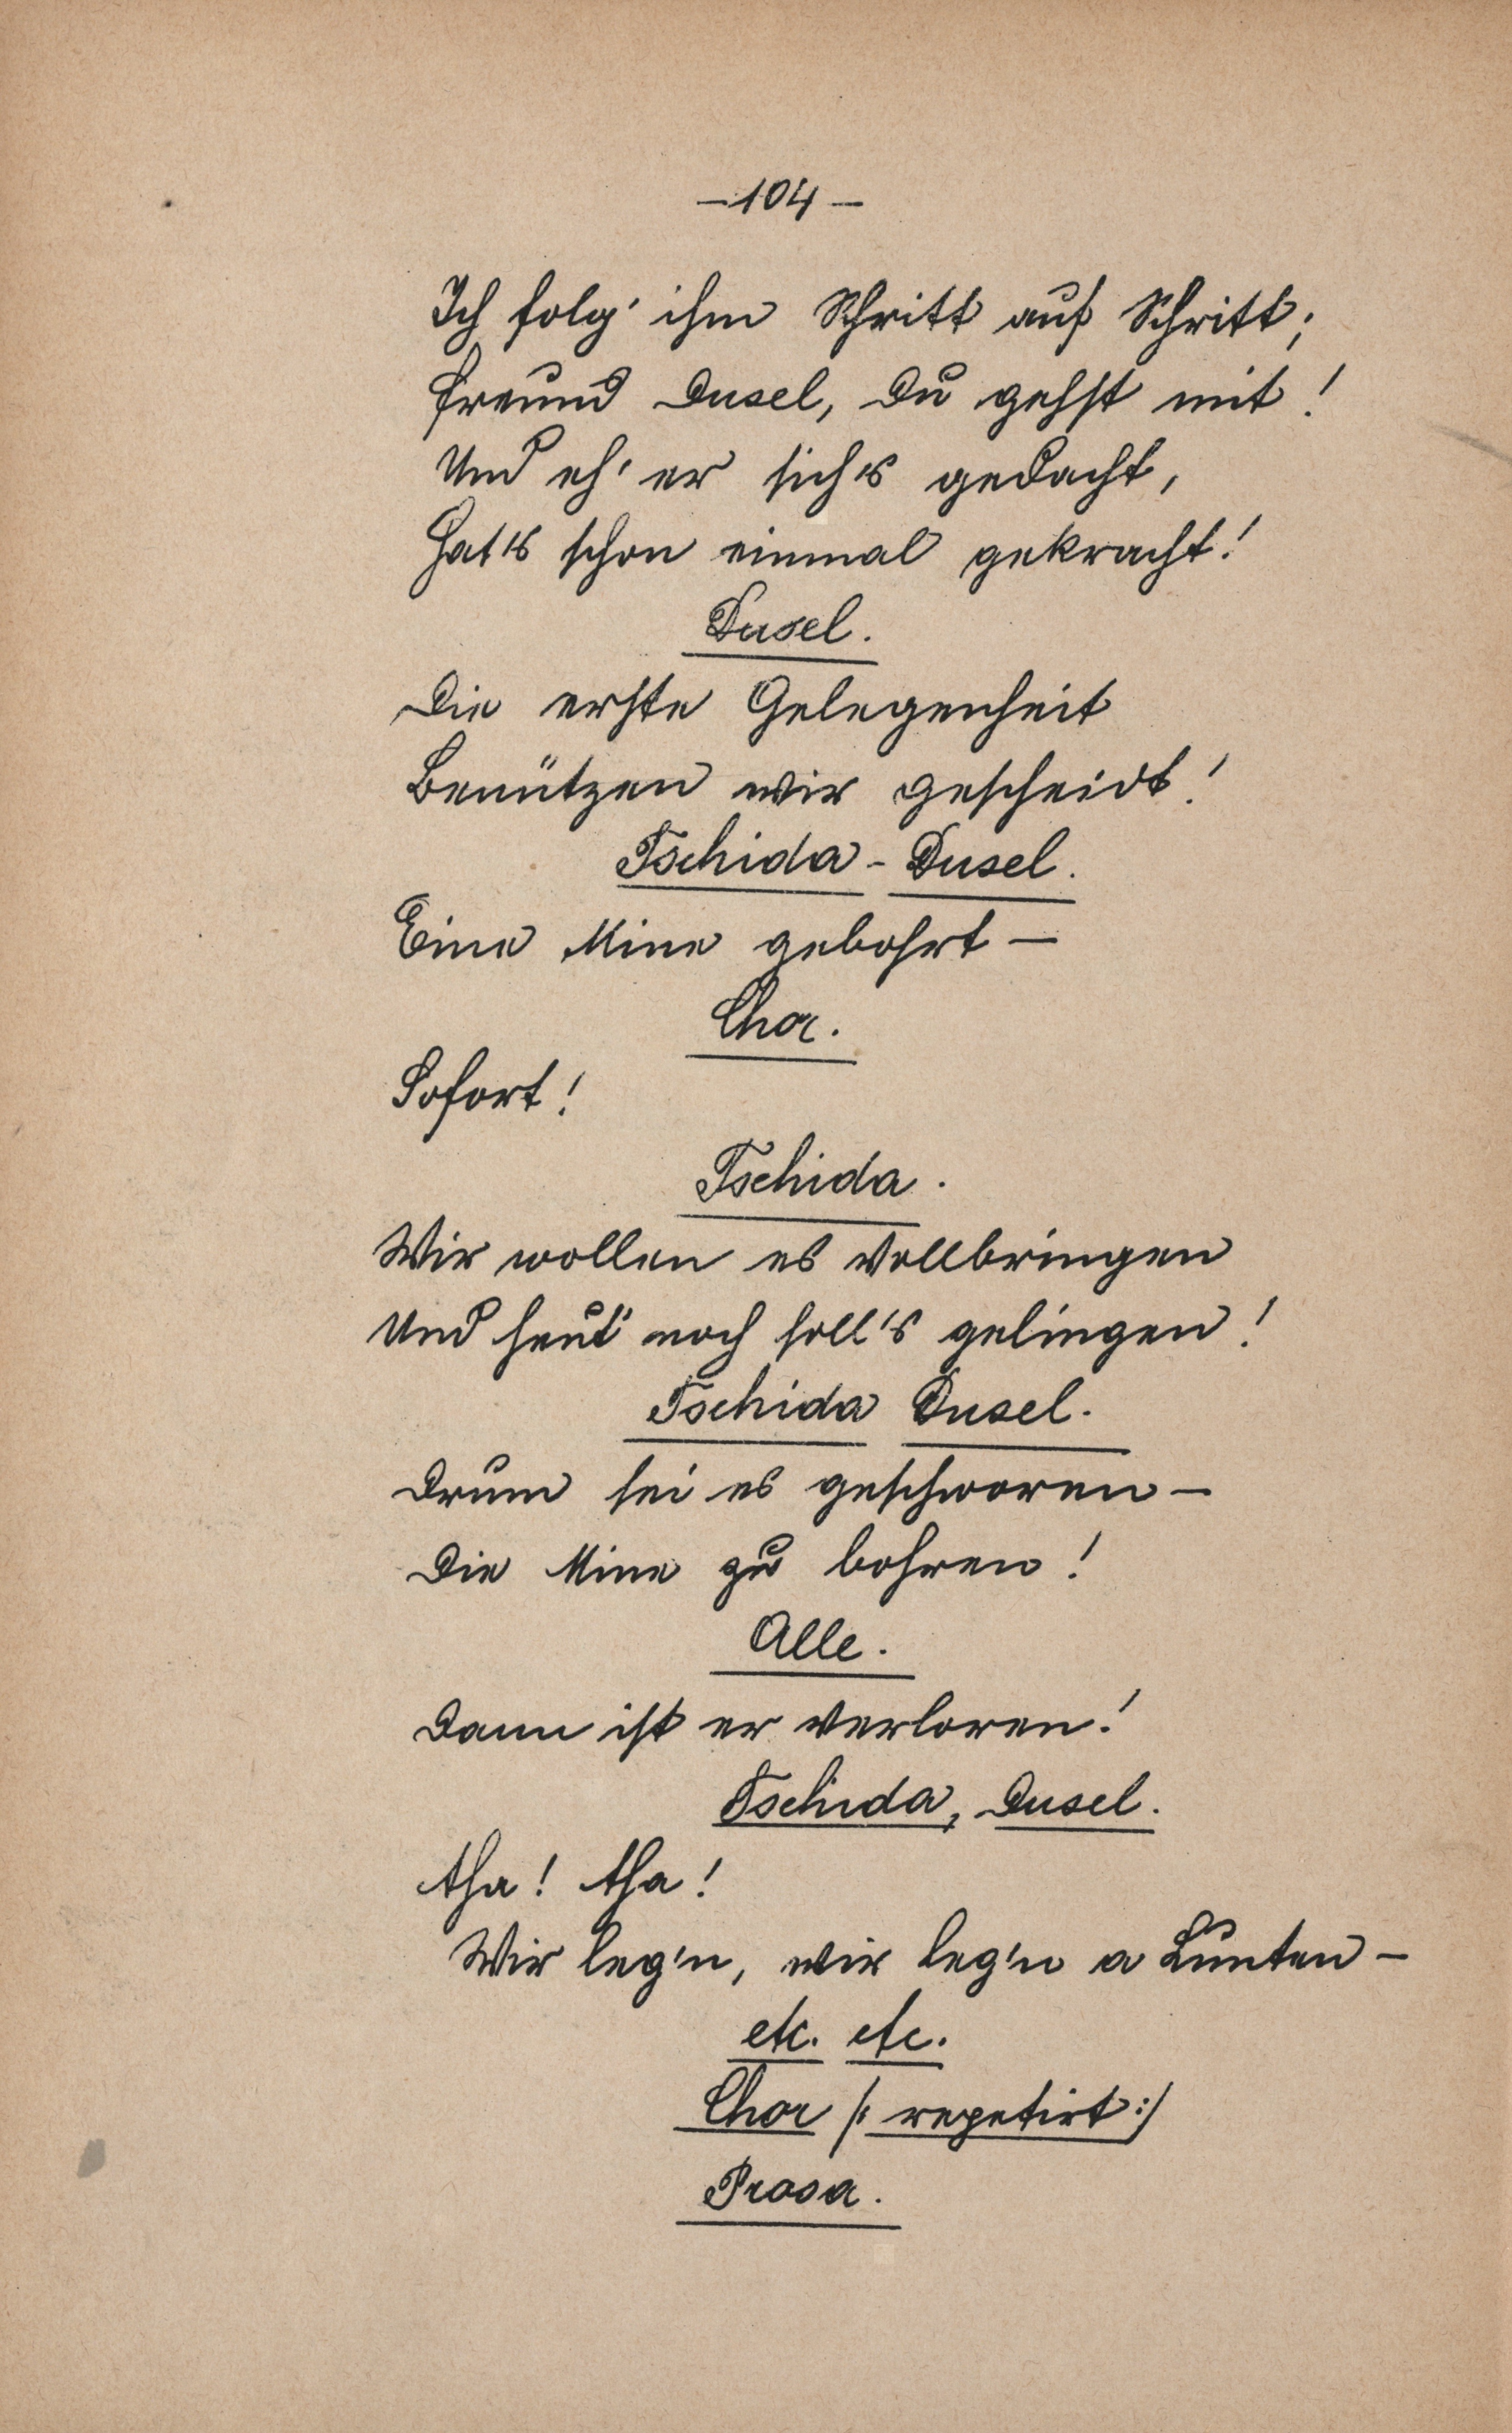 –104–
Ich folg' ihm Schritt auf Schritt;
Freund Dusel, Du gehst mit!
Und eh' er sich's gedacht,
Hat's schon einmal gekracht!
Dusel.
Die erste Gelegenheit
Benützen wir gescheidt!
Tschida - Dusel.
Eine Mine gebohrt –
Chor.
Sofort!
Tschida.
Wir wollen es vollbringen
Und heut' noch soll's gelingen!
Tschida Dusel.
Drum sei es geschworen –
Die Mine zu bohren!
Alle.
Dann ist er verloren!
Tschida, Dusel.
Aha! Aha!
Wir leg'n, wir leg'n a Lunten –
etc. etc.
Chor /: repetirt :/
Prosa.